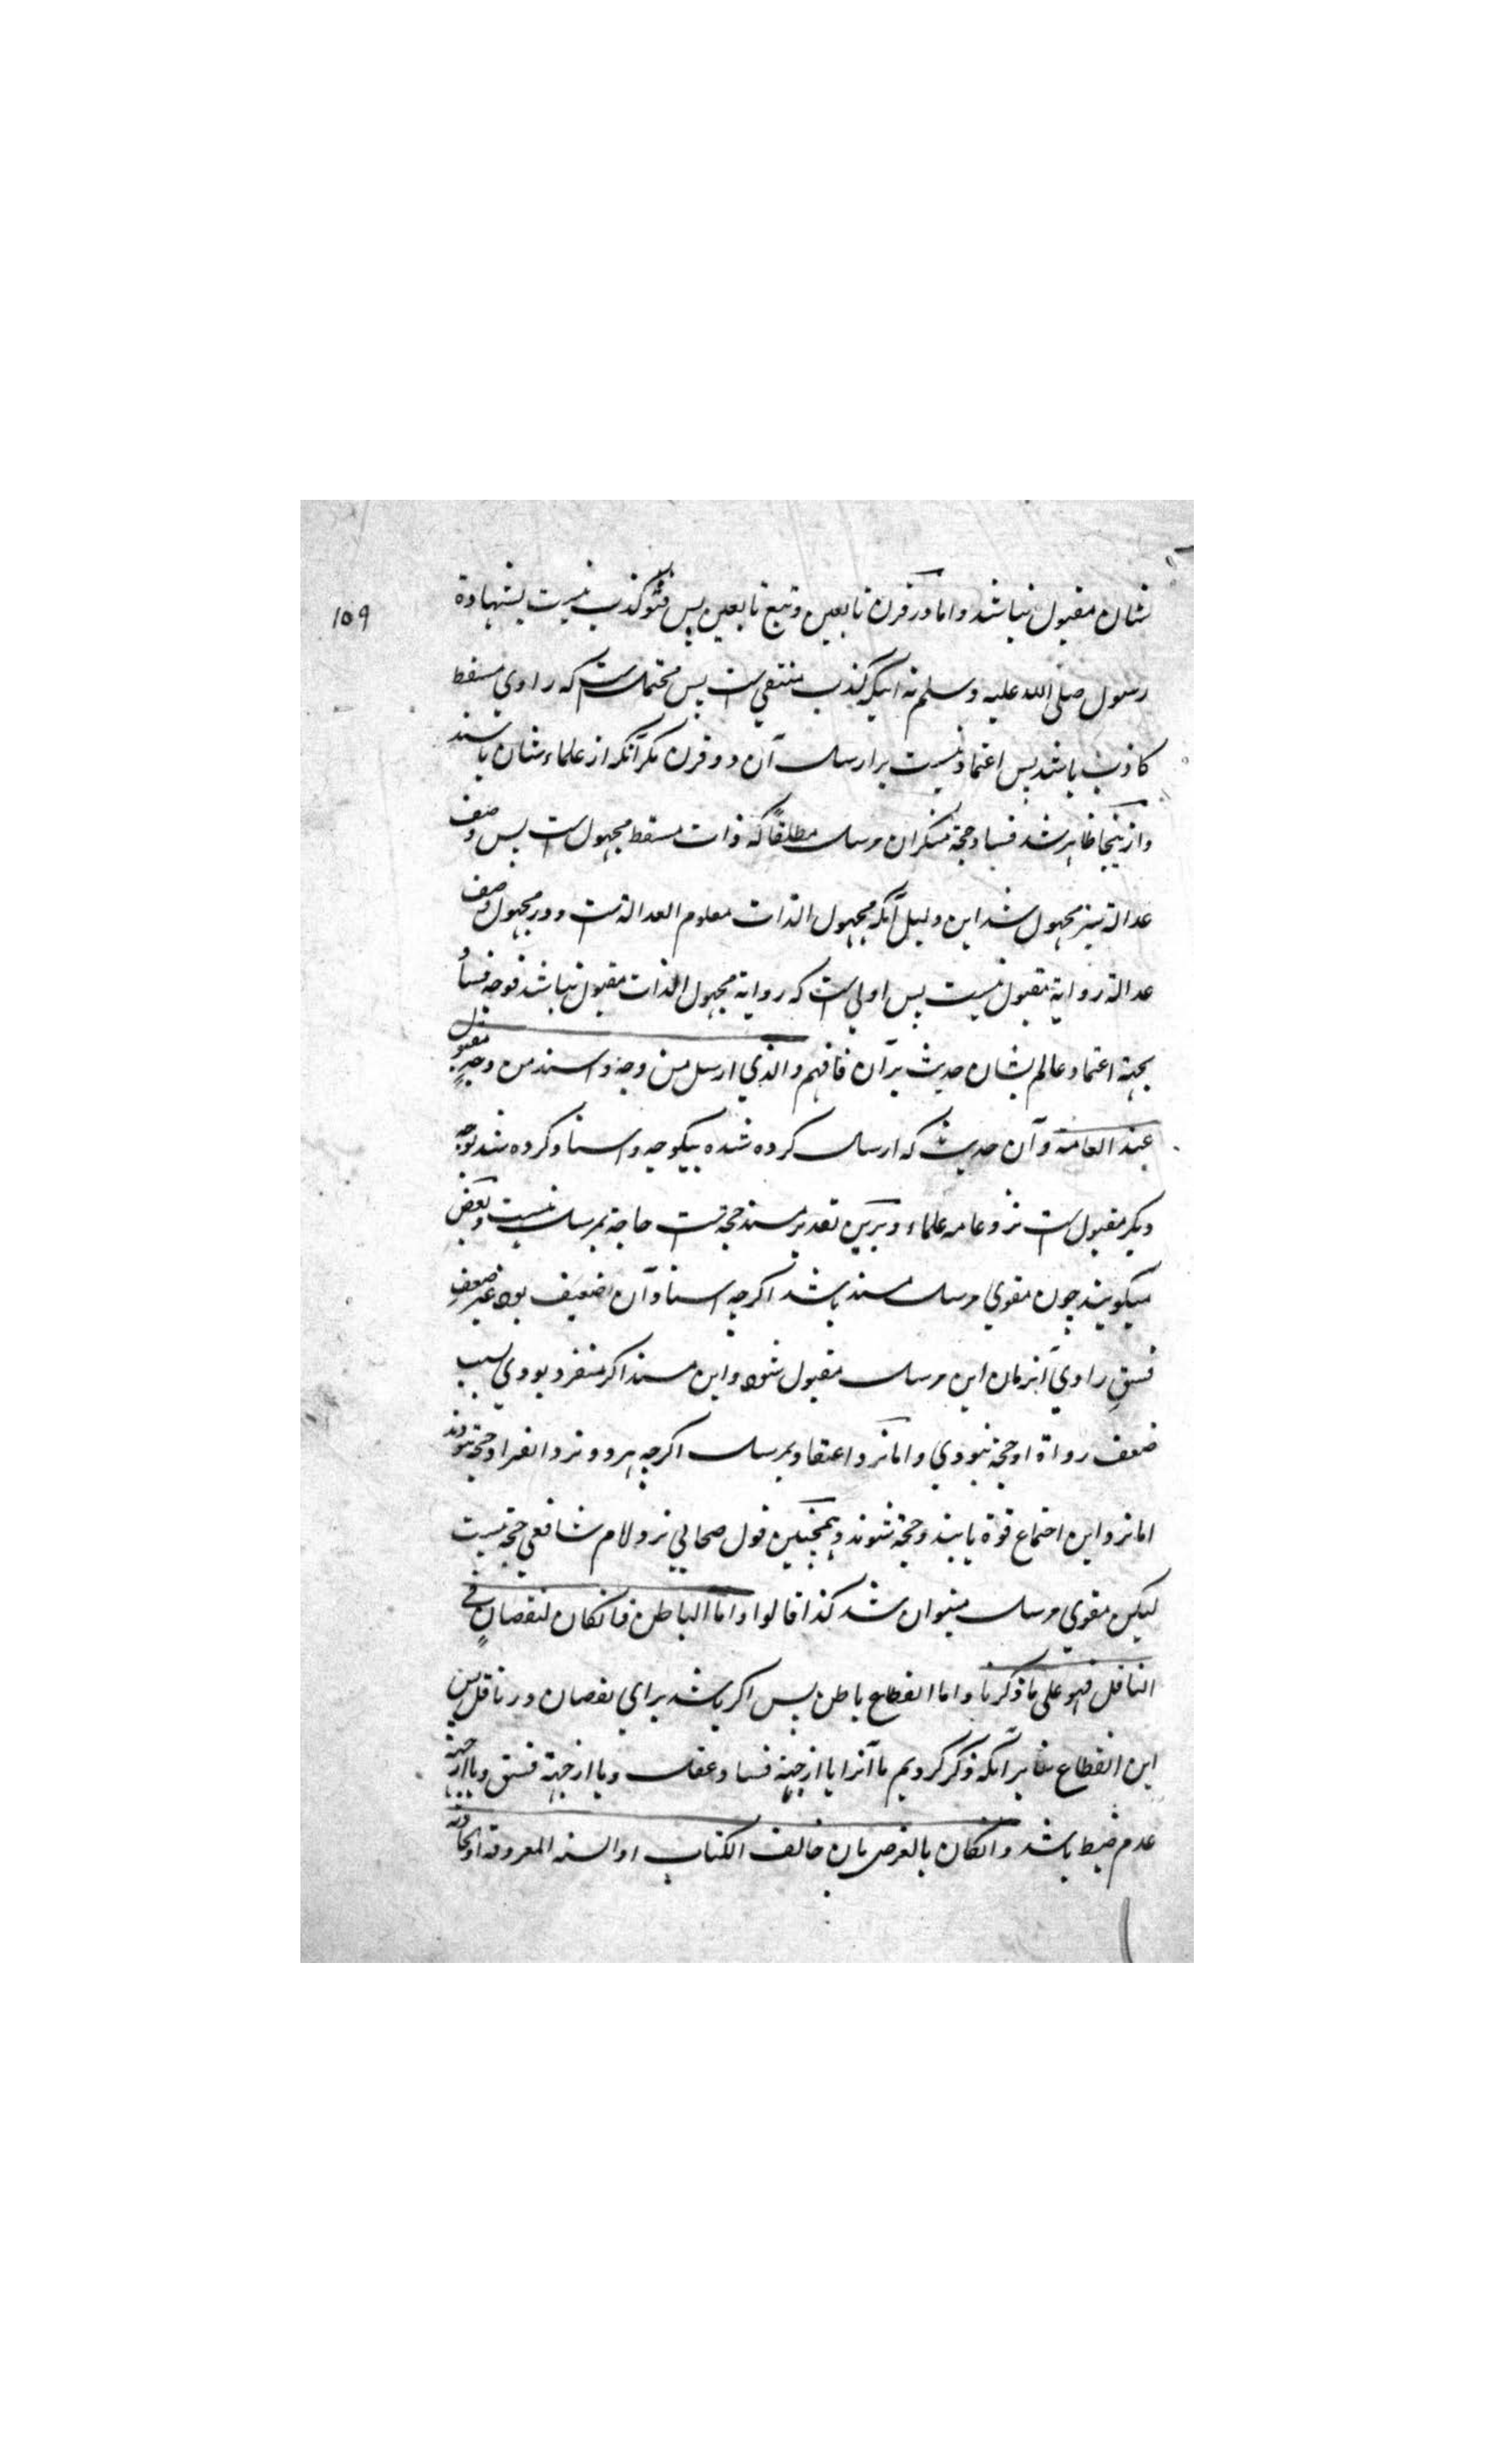 ۱۵۹
نشان مقبول نباشد و اما در قرن تابعین و تبع تابعین پس فشو کذب نیست بشهادة
رسول صلی الله علیه و سلم نه اینکه کذب منتفی است پس محتمل است که راوی مسقط
کاذب باشد پس اعتماد نیست بر ارسال آن دو قرن مکر آنکه از علماء شان باشند
و ازینجا ظاهر شد فساد حجة منکران مرسل مطلقا که ذات مسقط مجهول است پس وصف
عدالة نیز مجهول شد این دلیل آنکه مجهول الذات معلوم العدالة است و در مجهول وصف
عدالة روایة مقبول نیست پس اولی است که روایة مجهول الذات مقبول نباشد فوجه فساد
بجهة اعتماد عالم بشان حدیث بر آن فافهم والذی ارسل من وجه و اسند من وجه مقبول
عند العامة و آن حدیث که ارسال کرده شده بیکوجه و اسناد کرده شد بوجه
دیکر مقبول است نزد عامه علماء و برین تقدیر مسند حجة است حاجة بمرسل نیست و بعض
میکویند چون مقوی مرسل مسند باشد اکرچه اسناد آن ضعیف بود غیر ضعف
فسق راوی آنزمان این مرسل مقبول شود و این مسند اکر منفرد بودی بسبب
ضعف رواة او حجة نبودی و اما نزد اعتضاد بمرسل اکرچه هر دو نزد انفراد حجة نبودند
اما نزد این اجتماع قوة یابند و حجة شوند و همچنین قول صحابی نزد امام شافعی حجة نیست
لیکن مقوی مرسل میتوان شد کذا قالوا و اما الباطن فانکان لنقصان فی
الناقل فهو علی ما ذکرنا و اما انقطاع باطن پس اکر باشد برای نقصان در ناقل پس
این انقطاع بنابر آنکه ذکر کردیم ما آنرا یا از جهة فساد عقل و یا از جهة فسق و یا از جهة
عدم ضبط باشد و انکان بالعرض بان خالف الکتاب او السنة المعروفة او الحادثة